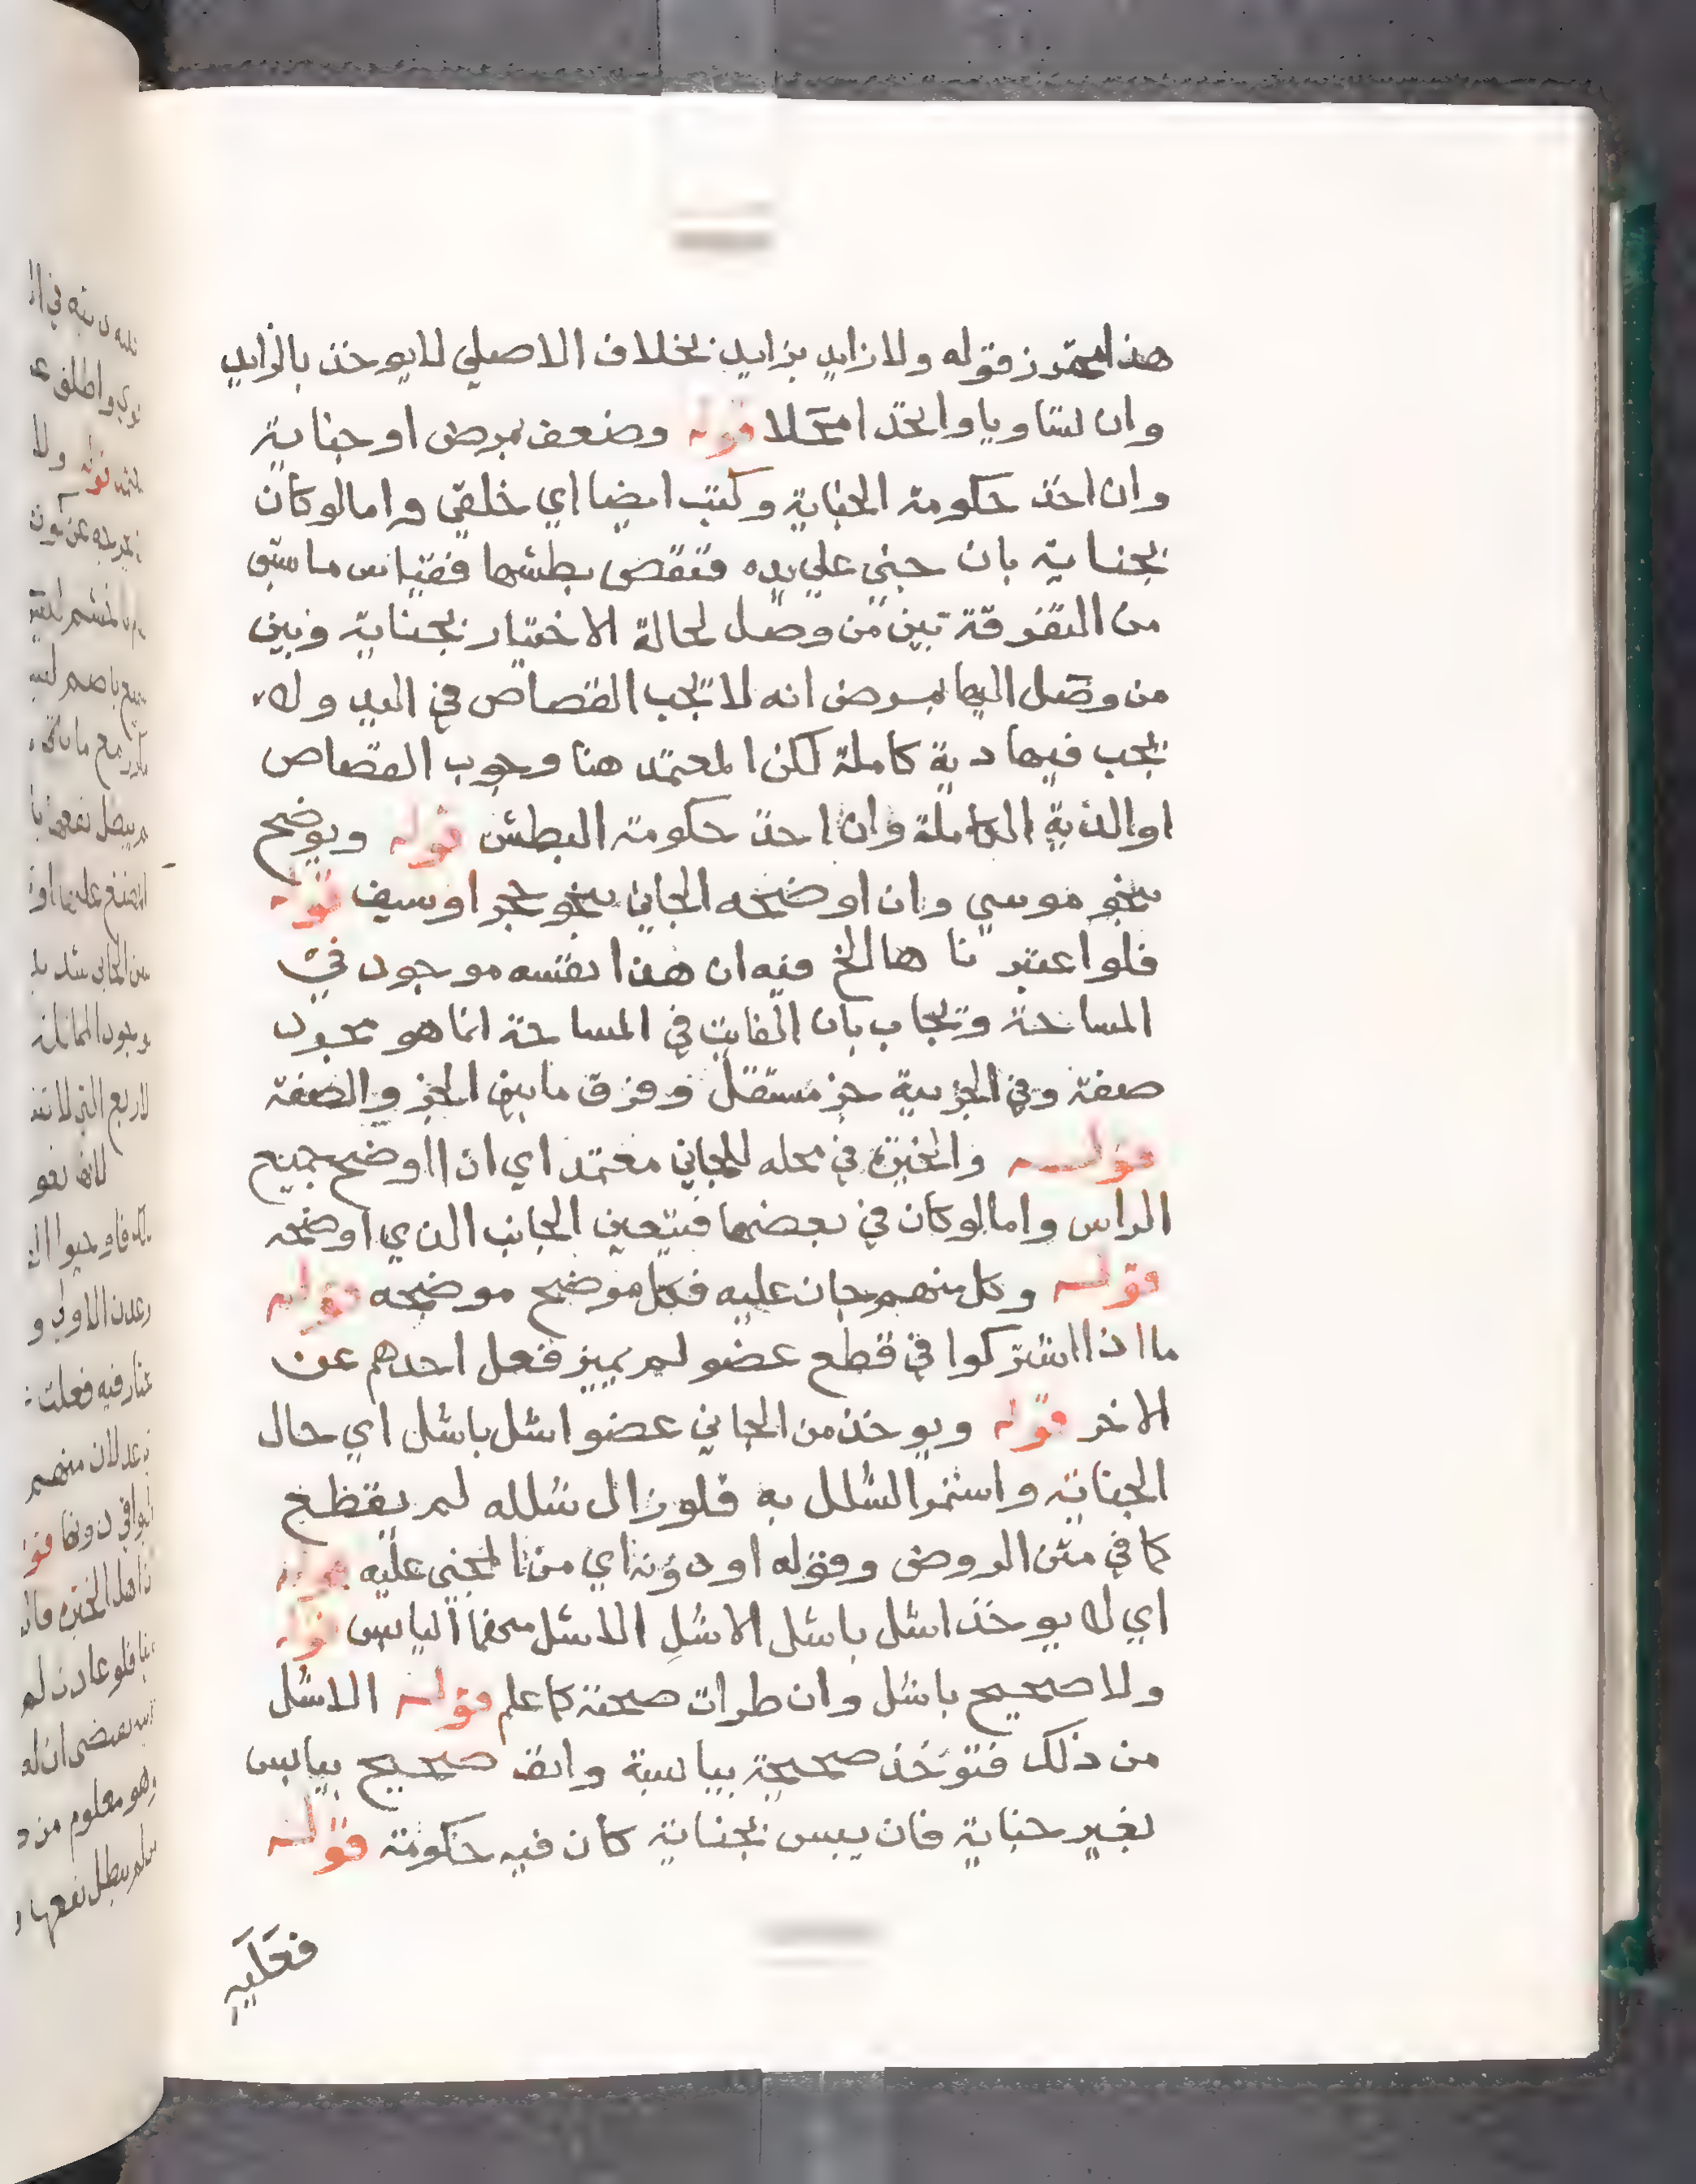 هذا محترز قوله ولا زايد بزايد بخلاف الاصلي لا يوخذ بالزايد
وان تساويا واتحدا محلا قوله وضعف بمرض او جناية
وان اخذ حكومة الجناية وكتب ايضا اي خلقي واما لو كان
بجناية بان جني علي يده فنقص بطشها فقياس ما سبق
من التفرقة بين من وصل لحالة الاختيار بجناية وبين
من وصل اليها بمرض انه لا تجب القصاص في اليد ولا
تجب فيها دية كاملة لكن المعتمد هنا وجوب القصاص
او الدية الكاملة وان اخذ حكومة البطش قوله ويوضح
بنحو موسي وان اوضحه الجاني بنحو حجر او سيف قوله
فلو اعتبرناها الخ فيه ان هذا نفسه موجود في
المساحة ويجاب بان الفايت في المساحة انما هو مجرد
صفة وفي الجزيية جز مستقل وفرق ما بين الجز والصفة
قوله والخيرة في محله للجاني معتمد اي ان اوضح جميع
الراس واما لو كان في بعضها فيتعين الجانب الذي اوضحه
قوله وكل منهم جان عليه فكل موضح موضحه قوله
ما اذا اشتركوا في قطع عضو لم يميز فعل احدهم عن
الاخر قوله ويوخذ من الجاني عضو اشل باشل اي حال
الجناية واستمر الشلل به فلو زال شلله لم يقطع
كما في متن الروض وقوله او دونه اي من المجني عليه قوله
اي لا يوخذ اشل باشل الاشل اليابس قوله
ولا صحيح باشل وان طرات صحة كما علم قوله الاشل
من ذلك فتوخذ صحيحة بيابسة وانف صحيح بيابس
بغير جناية فان يبس بجناية كان فيه حكومة قوله
فعليه